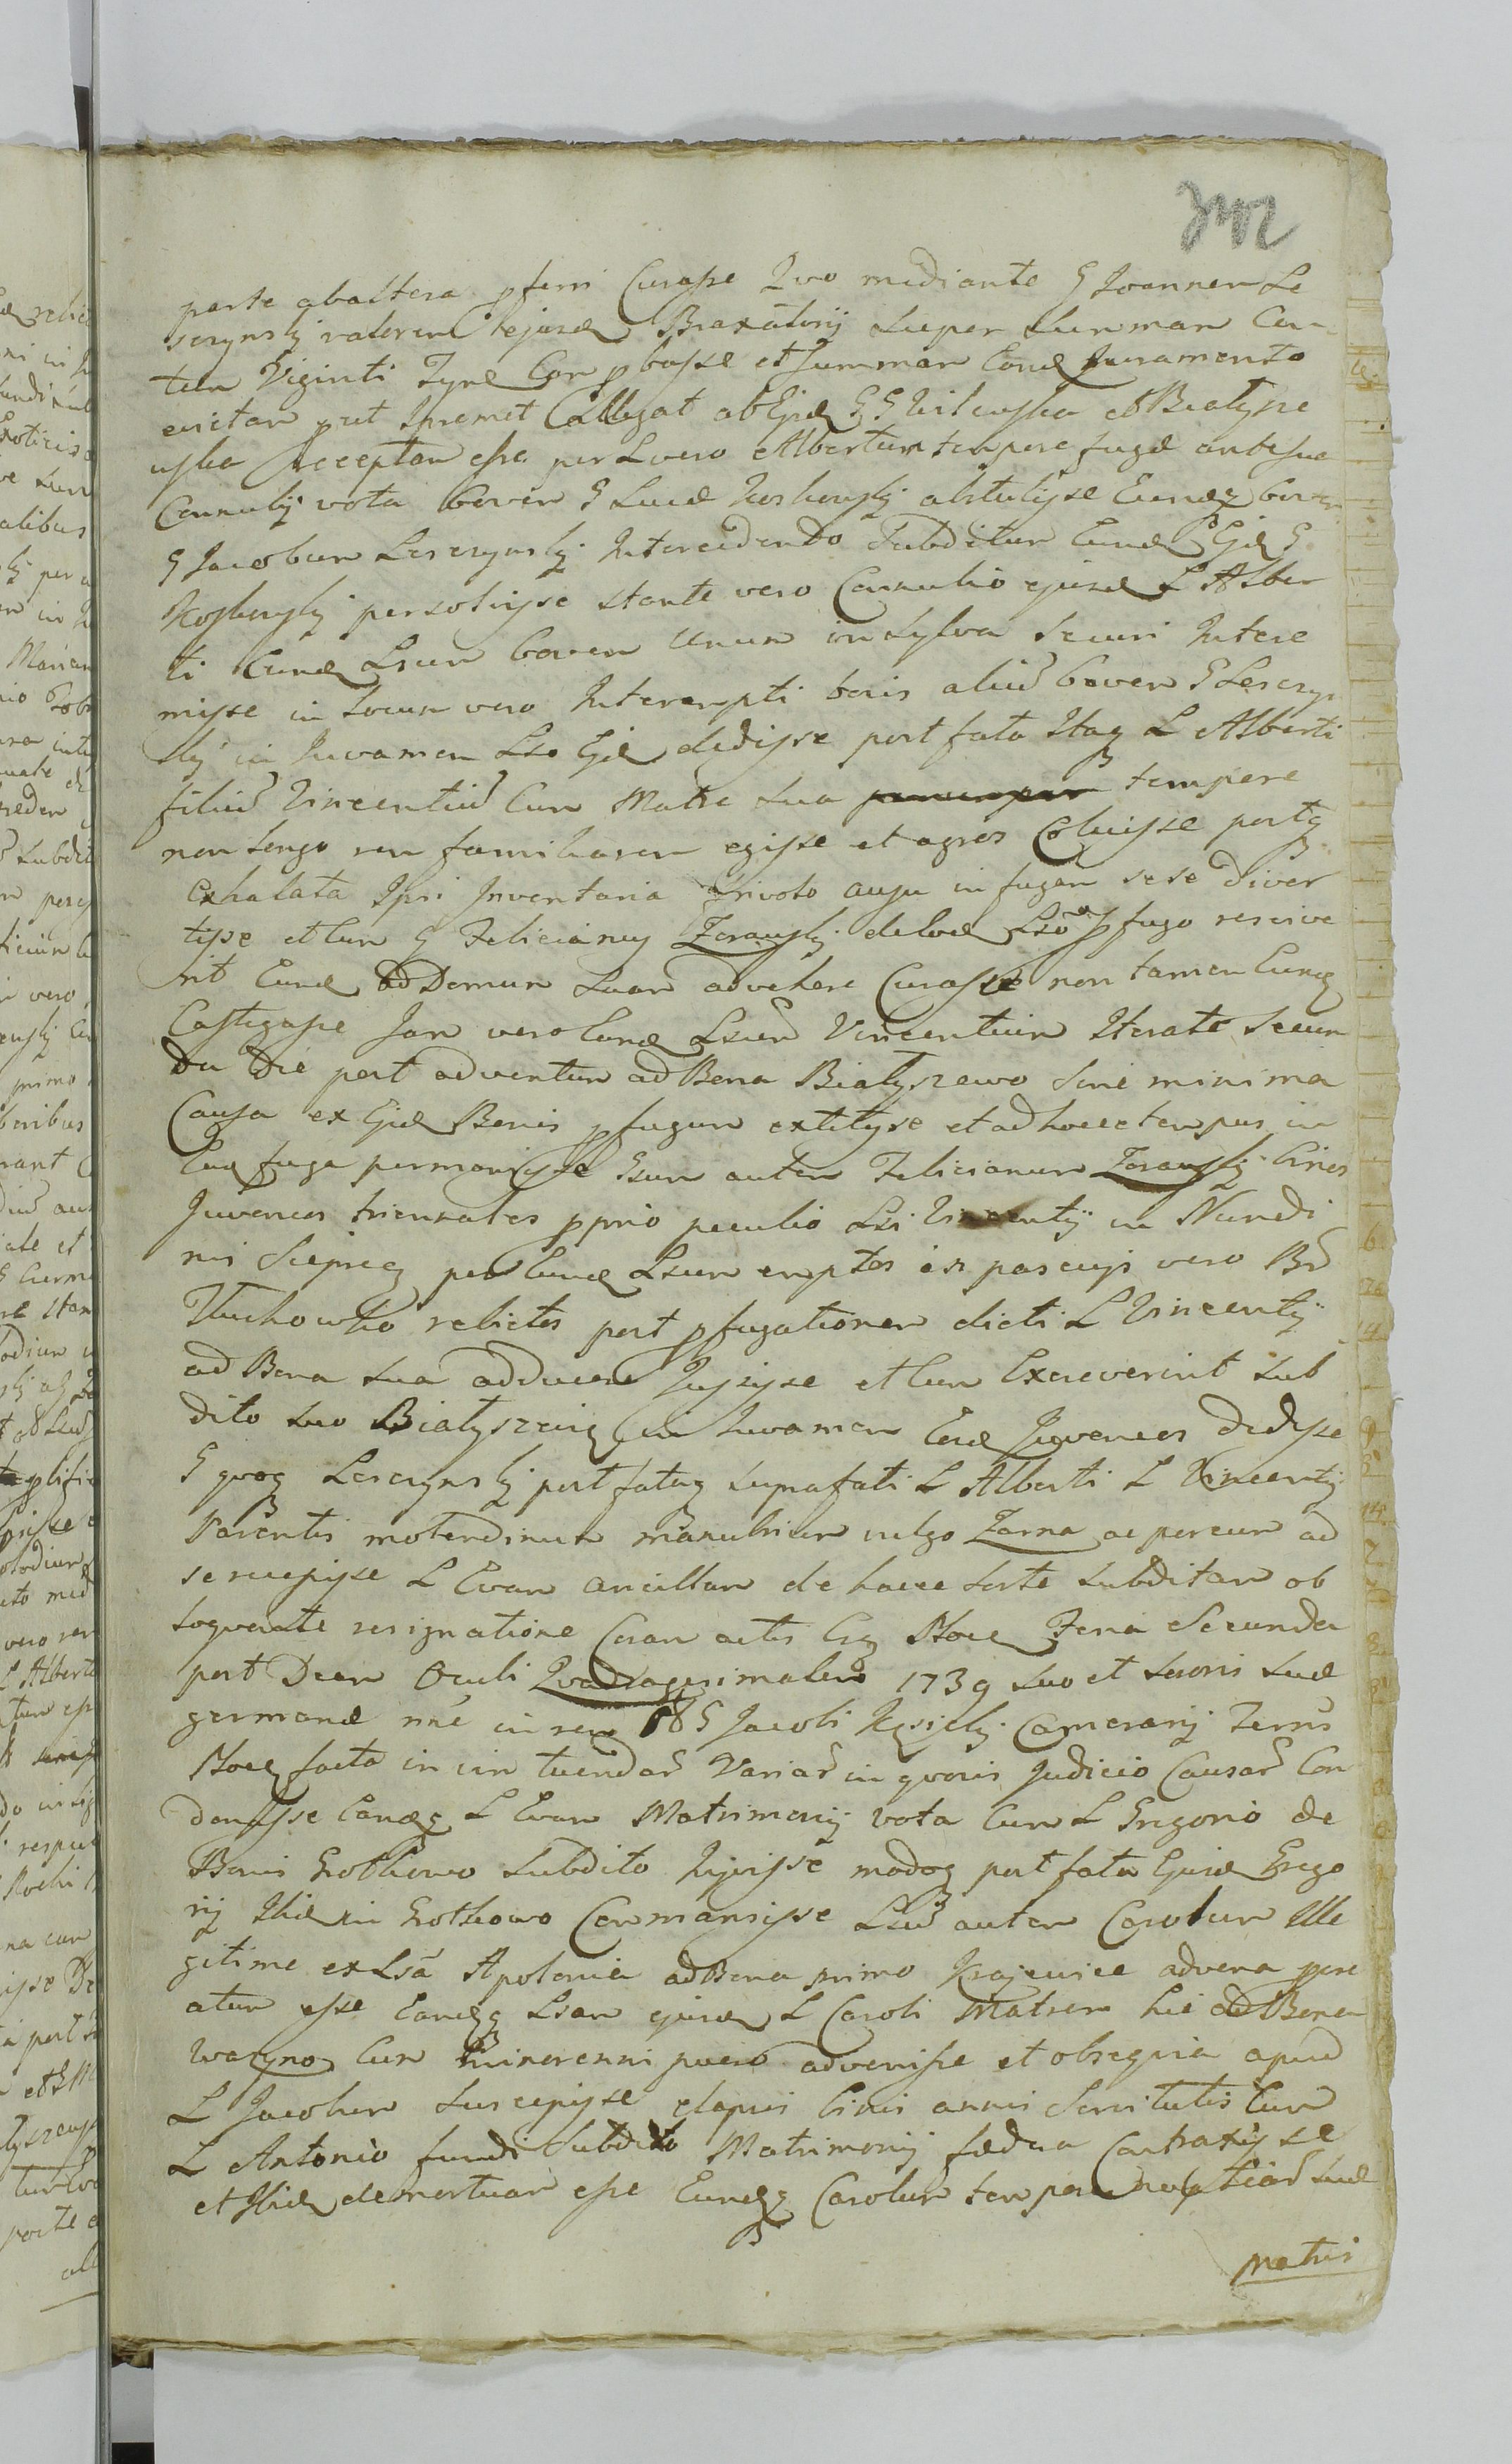 342
parte ab altera pferri Curasse Quo mediante G Joannem Le
sczynskj valorem ejusd Braxatorij super summam Cen
tum Viginti Tynf Con pbasse et summam Eand Juramento
evictam put Ipsemet Allegat ab Ejsd G G et Białysze
wska receptam esse per L vero Albertum tempore fugæ ante sua
Connubij vota bovem G Lucæ Koskowskj abstulisse Eundq bovem
G Jacobum Lesczynskj Intercedendo Subditum Eund Ejsd G
Koskowskj persolvisse stante vero Connubio ejusd L Alber
ti Eund Lsum bovem Unum in sylva securi Intere
misse in locum vero Interempti bovis aliud bovem G Lesczyn
skj in Juvamen Lso Ejsd dedisse post fata Itaq L Alberti
filiu Vincentiu Cum Matre sua tempore
non longo rem familiarem egisse et agros Coluisse postq
exhalata Ipsi Inventaria frivolo ausu in fugam sese diver
tisse et Cum G Felicianus Zorawskj de loco Lso pfugo rescive
rit Eund ad Domum suam advehere Curasse non tamen Eund
Castigasse Jam vero Eund Lsum Vincentium Iterate Secun
da die post adventum ad Bona Białyszewo sine minima
Causa ex Ejsd Bonis pfugum extitisse et ad hocce tempus in
Ead fuga permansisse Gsum autem Felicianum Zorawskj binos
Juvencos triennales pprio peculio Lsi Vincentij in Nundi
nis Sieprcz per Eund Lsum emptos in pascuis vero Br
Tłuchowko relictos post pfugationem dicti L Vincentij
ad Bona sua adducere Jussisse et Cum Excreverint sub
dito suo Białyszewicz in Juvamen Eosd Juvencos dedisse
G quoq Lesczynskj post fataq suprafati L Alberti L Vincentij
Parentis molendinum manubrium vulgo Żarna ac porcum ad
se recepisse L Evam ancillam de hacce sorte subditam ob
loquente resignatione Coram actis Csz Plocen Feria Secunda
post Dcam Oculi Quadragesimalem 1739 suo et sororis suæ
germanæ nne in rem G Jacobi Camerarij Terris
Plocen facta in vim tuendar Variar in quovis Judicio Causar Con
donasse Eandq L Evam Matrimonij vota Cum L Gregorio de
Bonis Grotkowo subdito Inivisse modoq post fata Ejusd Grego
rij Ibid in Grotkowo Commansisse Lsu autem Carolum Ille
gitime ex Lsa Apolonia ad Bona primo Krajewice advena pcre
atum esse Eandq Lsam ejusd L Caroli Matrem hic ad Bona
Wozno Cum minorenni puero advenisse et obsequia apud
L Jacobum suscepisse elapsis binis annis Servitutis Cum
L Antonio fundi subdito Matrimonij fædera Contraxisse
et Ibid demortuam esse Eundq Carolum tempore nuptiar suæ
Matris